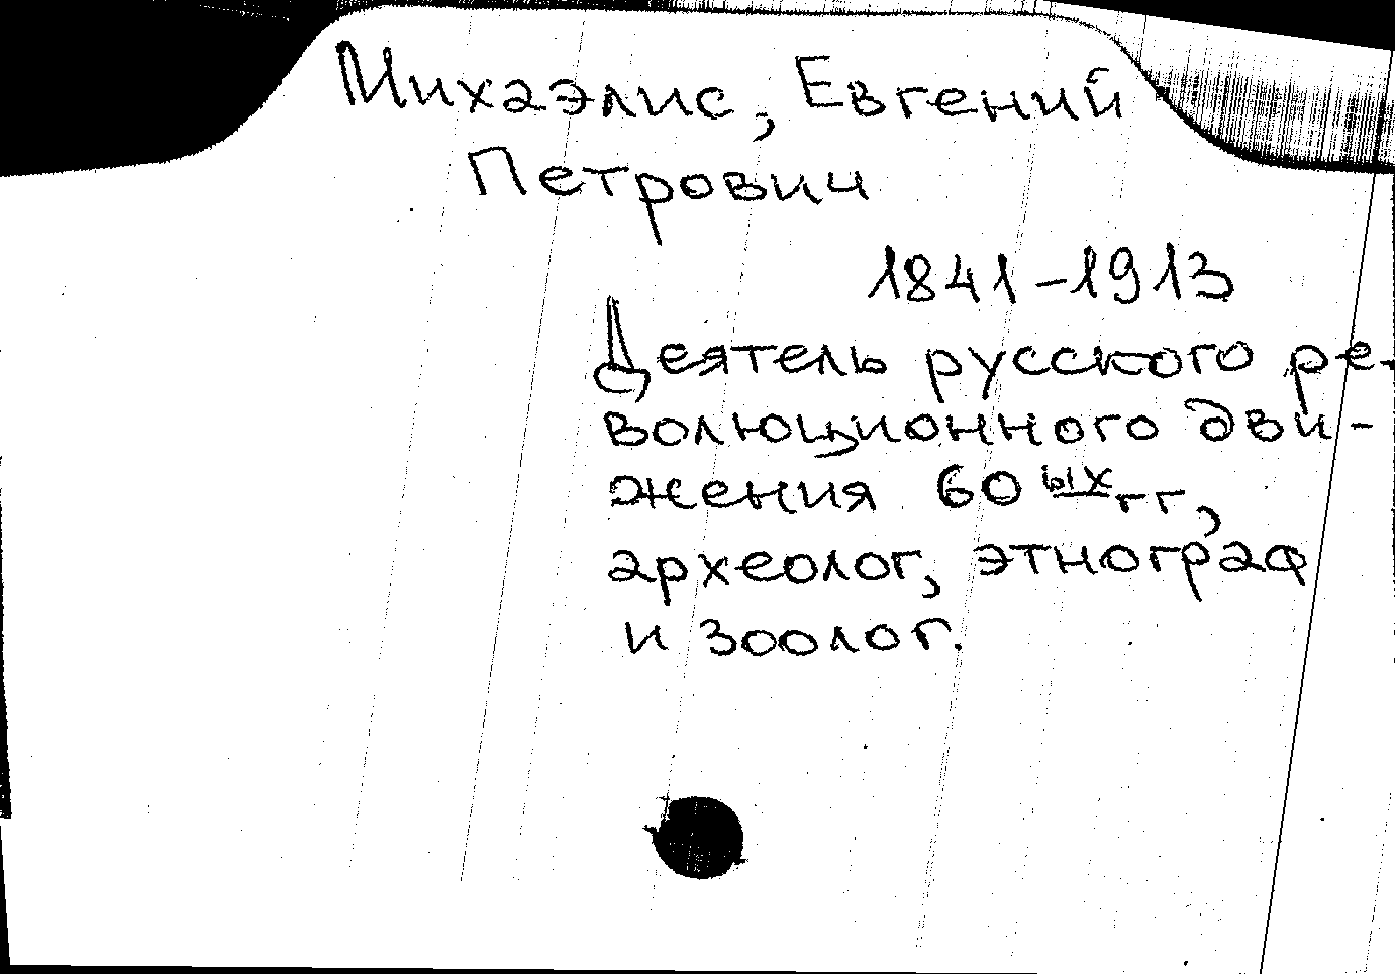 Михаэлис, Евгений
Петрович
1841-1913
Деятель русского ре-
волюционного дви-
жения 60ых гг,
археолог, этнограф
и зоолог.